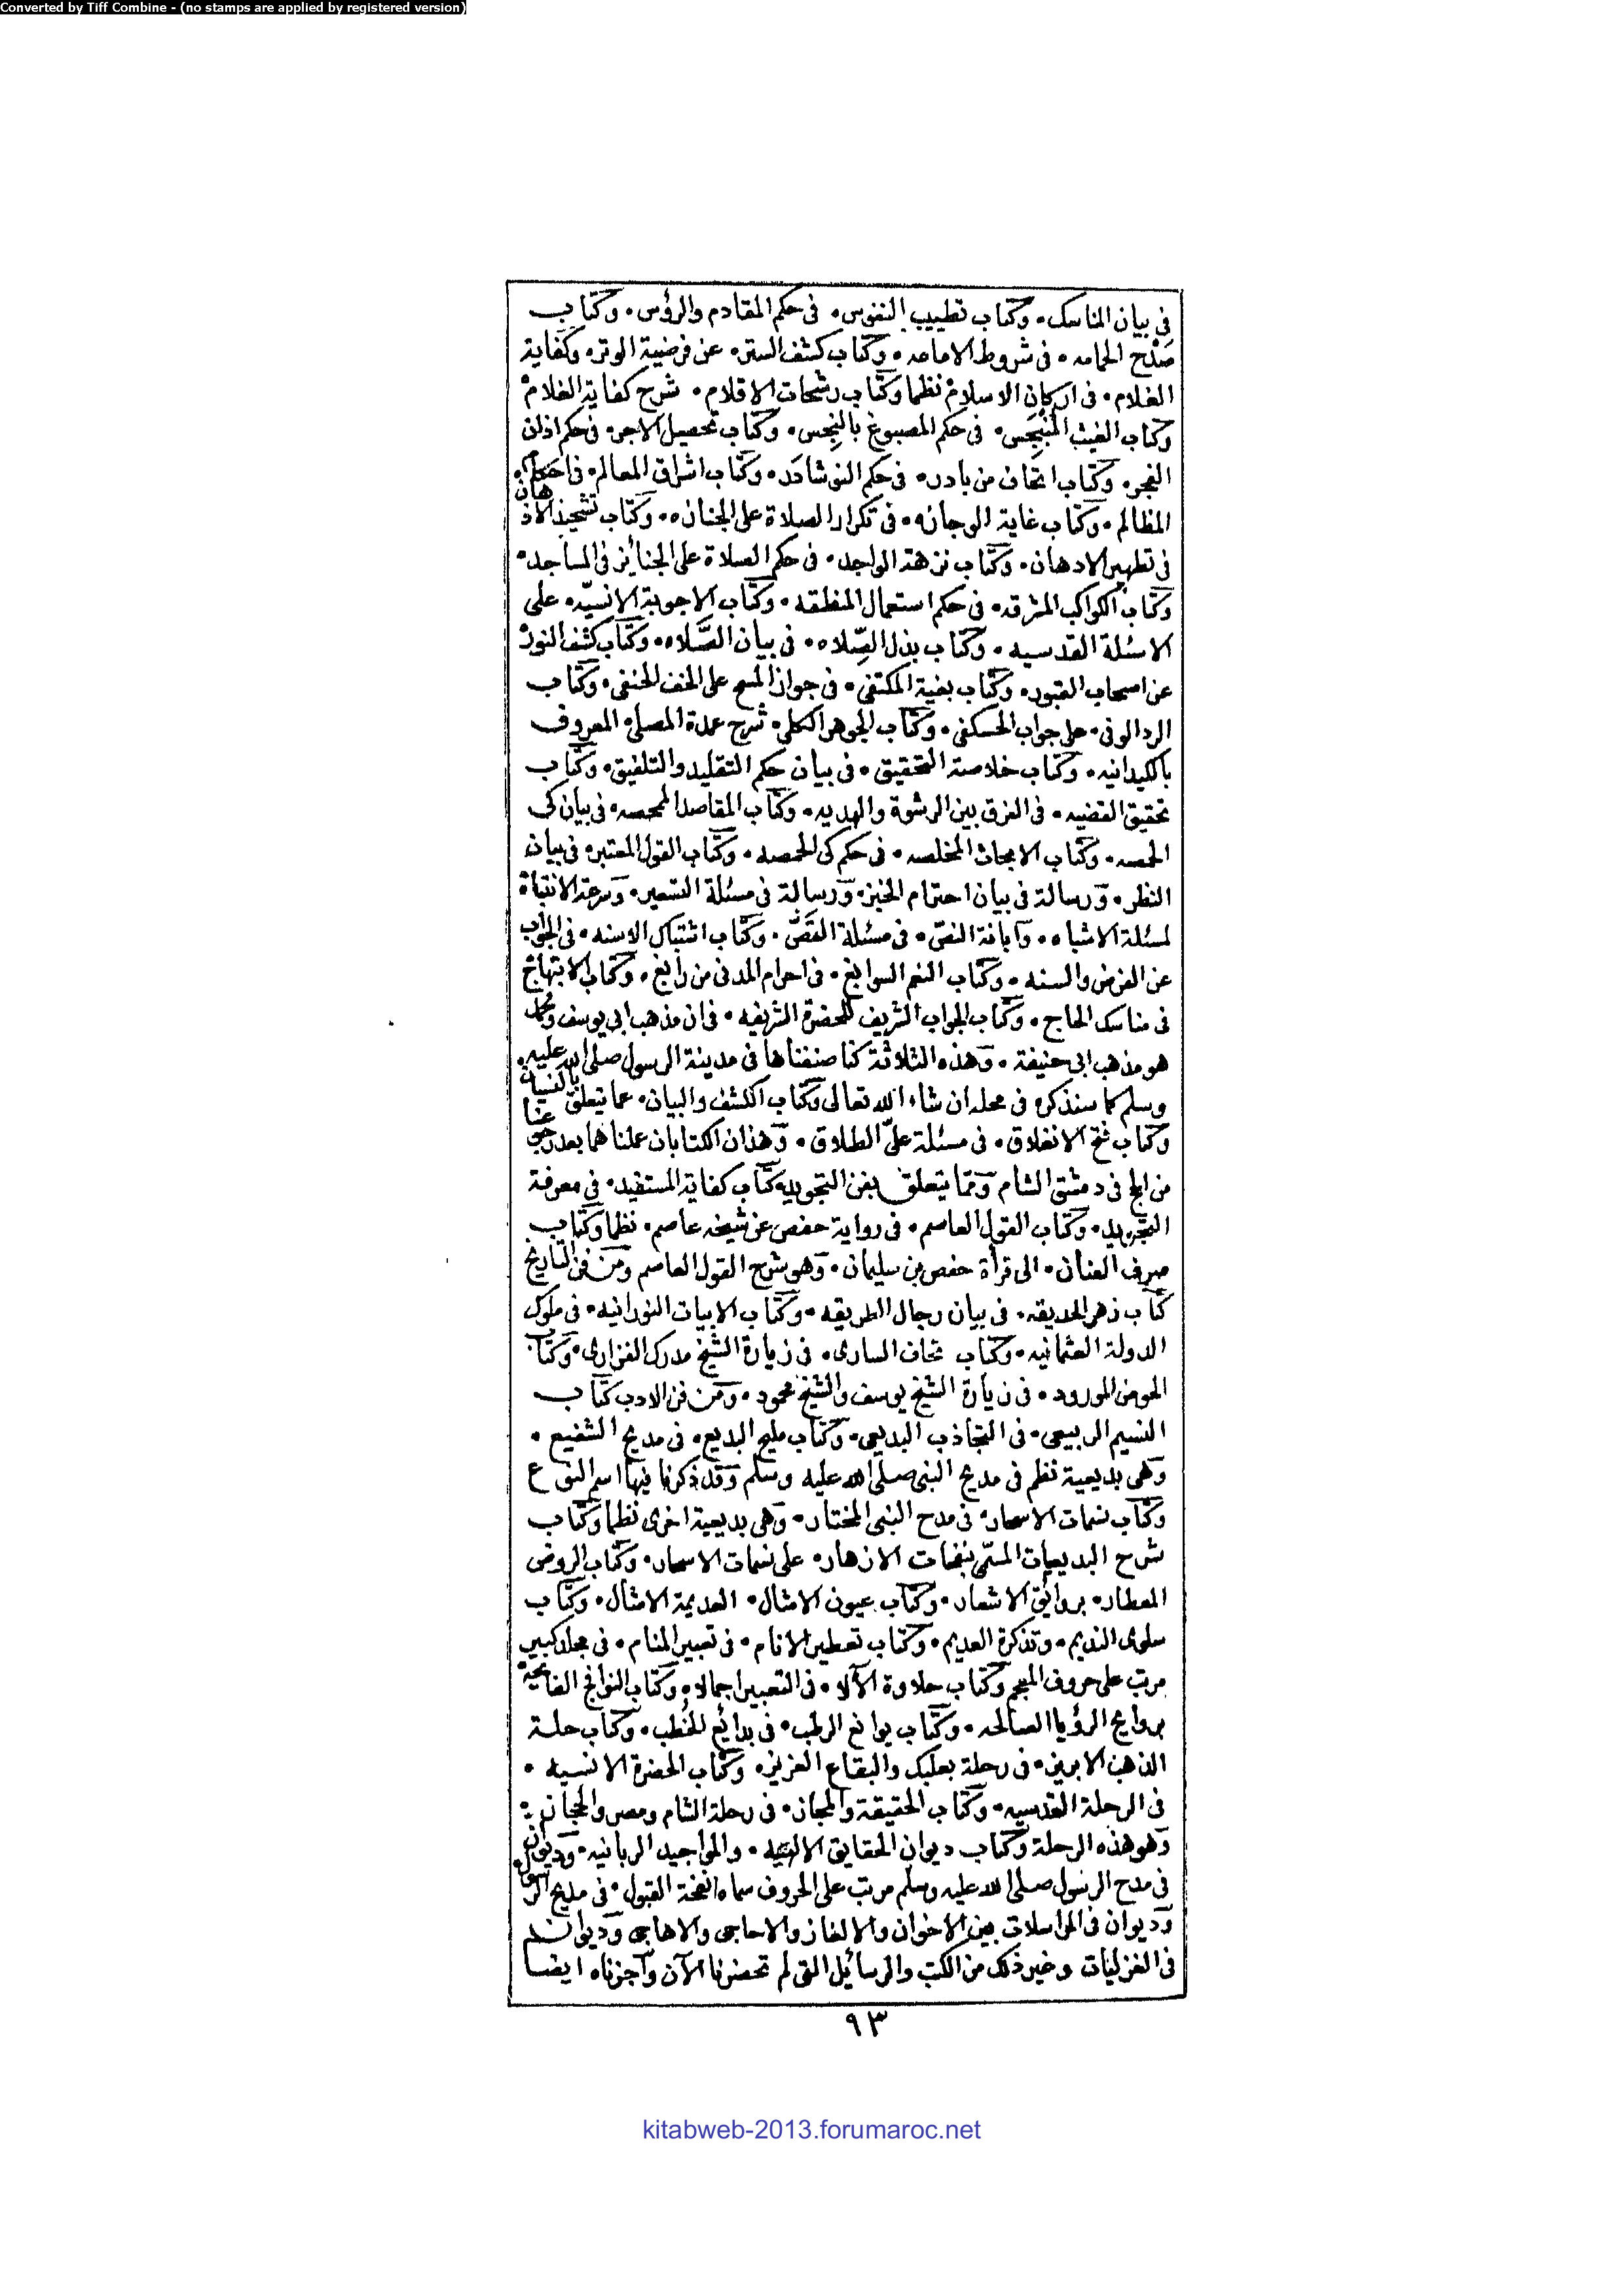 Converted by Tiff Combine - (no stamps are applied by registered version)
في بيان المناسك • وكتاب تطييب النفوس • في حكم المقادم والرؤس • وكتاب
صدح الحمامه • في شروط الامامه • وكتاب كشف الستر • عن فرضية الوتر • وكفاية
الغلام • في اركان الاسلام نظما وكتاب رشحات الاقلام • شرح كفاية الغلام
وكتاب الغيث المنبجس • في حكم المصبوغ بالنجس • وكتاب تحصيل الاجر • في حكم اذان
الفجر • وكتاب اتحاف من بادر • في حكم النوشادر • وكتاب اشراق المعالم • في احكام
المظالم • وكتاب غاية الوجازه • في تكرار الصلاة على الجنازه • وكتاب تشحيذ الاذهان
في تطهير الادهان • وكتاب نزهة الواجد • في حكم الصلاة على الجنايز في المساجد •
وكتاب الكواكب المشرقه • في حكم استعمال المنطقه • وكتاب الاجوبة الانسيه • على
الاسئلة القدسيه • وكتاب بذل الصلاه • في بيان الصلاه • وكتاب كشف النور
عن اصحاب القبور • وكتاب بغية المكتفي • في جواز المسح على الخف الحنفي • وكتاب
الرد الوفي • على جواب الحسكفي • وكتاب الجوهر الكلي • شرح عمدة المصلي • المعروف
بالكيدانيه • وكتاب خلاصة التحقيق • في بيان حكم التقليد والتلفيق • وكتاب
تحقيق القضيه • في الفرق بين الرشوة والهديه • وكتاب المقاصد الممحصه • في بيان كي
الحمصه • وكتاب الابحاث المخلصه • في حكم كي الحمصه • وكتاب القول المعتبر • في بيان
النظر • ورسالة في بيان احترام الخبز • ورسالة في مسئلة التسعير • وسرعة الانتباه
لمسئلة الاشباه • وابانة النص • في مسئلة القص • وكتاب اشتباك الاسنه • في الجواب
عن الفرض والسنه • وكتاب النعم السوابغ • في احرام المدني من رابغ • وكتاب الابتهاج
في مناسك الحاج • وكتاب الجواب الشريف للحضرة الشريفه • في ان مذهب ابي يوسف ومحمد
هو مذهب ابي حنيفة • وهذه الثلاثة كنا صنفناها في مدينة الرسول صلى الله عليه
وسلم كما سنذكره في محله ان شاء الله تعالى وكتاب الكشف والبيان • عما يتعلق بالنسيان
وكتاب فتح الانغلاق • في مسئلة علي الطلاق • وهذان الكتابان عملناهما بعد رجوعنا
من الحج في دمشق الشام ومما يتعلق بفن التجويد كتاب كفاية المستفيد • في معرفة
التجويد • وكتاب القول العاصم • في رواية حفص عن شيخه عاصم • نظما وكتاب
صرف العنان • الى قرأة حفص بن سليمان • وهو شرح القول العاصم ومن فن التاريخ
كتاب زهر الحديقه • في بيان رجال الطريقه • وكتاب الابيات النورانيه • في ملوك
الدولة العثمانيه • وكتاب تحاف السارى • في زيارة الشيخ مدرك الفزارى • وكتاب
الحوض المورود • في زيارة الشيخ يوسف والشيخ محمود • ومن فن الادب كتاب
النسيم الربيعى • في التجاذب البديعى • وكتاب مليح البديع • في مديح الشفيع •
وهي بديعية نظم في مديح النبي صلى الله عليه وسلم وقد ذكرنا فيها اسم النوع
وكتاب نسمات الاسحار • في مدح النبي المختار • وهي بديعية اخرى نظما وكتاب
شرح البديعيات المسمى بنفحات الازهار • على نسمات الاسحار • وكتاب الروض
المعطار • بروائق الاشعار • وكتاب عيون الامثال • العديمة الامثال • وكتاب
سلوى النديم • وتذكرة العديم • وكتاب تعطير الانام • في تعبير المنام • في مجلد كبير
مرتب على حروف المعجم وكتاب حلاوة الآلا • في التعبير اجمالا • وكتاب النوافج الفايحة
بروايح الرؤيا الصالحه • وكتاب يوانع الرطب • في بدائع الخطب • وكتاب حلة
الذهب الابريز • في رحلة بعلبك والبقاع العزيز • وكتاب الحضرة الانسيه •
في الرحلة القدسيه • وكتاب الحقيقة والمجاز • في رحلة الشام ومصر والحجاز :
وهو هذه الرحلة وكتاب ديوان الحقايق الالهيه • والمواجيد الربانيه • وديوان
في مدح الرسول صلى الله عليه وسلم مرتب على الحروف سماه نفخة القبول • في مديح الرسول
وديوان في المراسلات بين الاخوان والالغاز والاحاجى والاهاجى وديوان
في الغزليات وغير ذلك من الكتب والرسائيل التي لم تحضرنا الآن وآجزناه ايضا
٩٣
kitabweb-2013.forumaroc.net